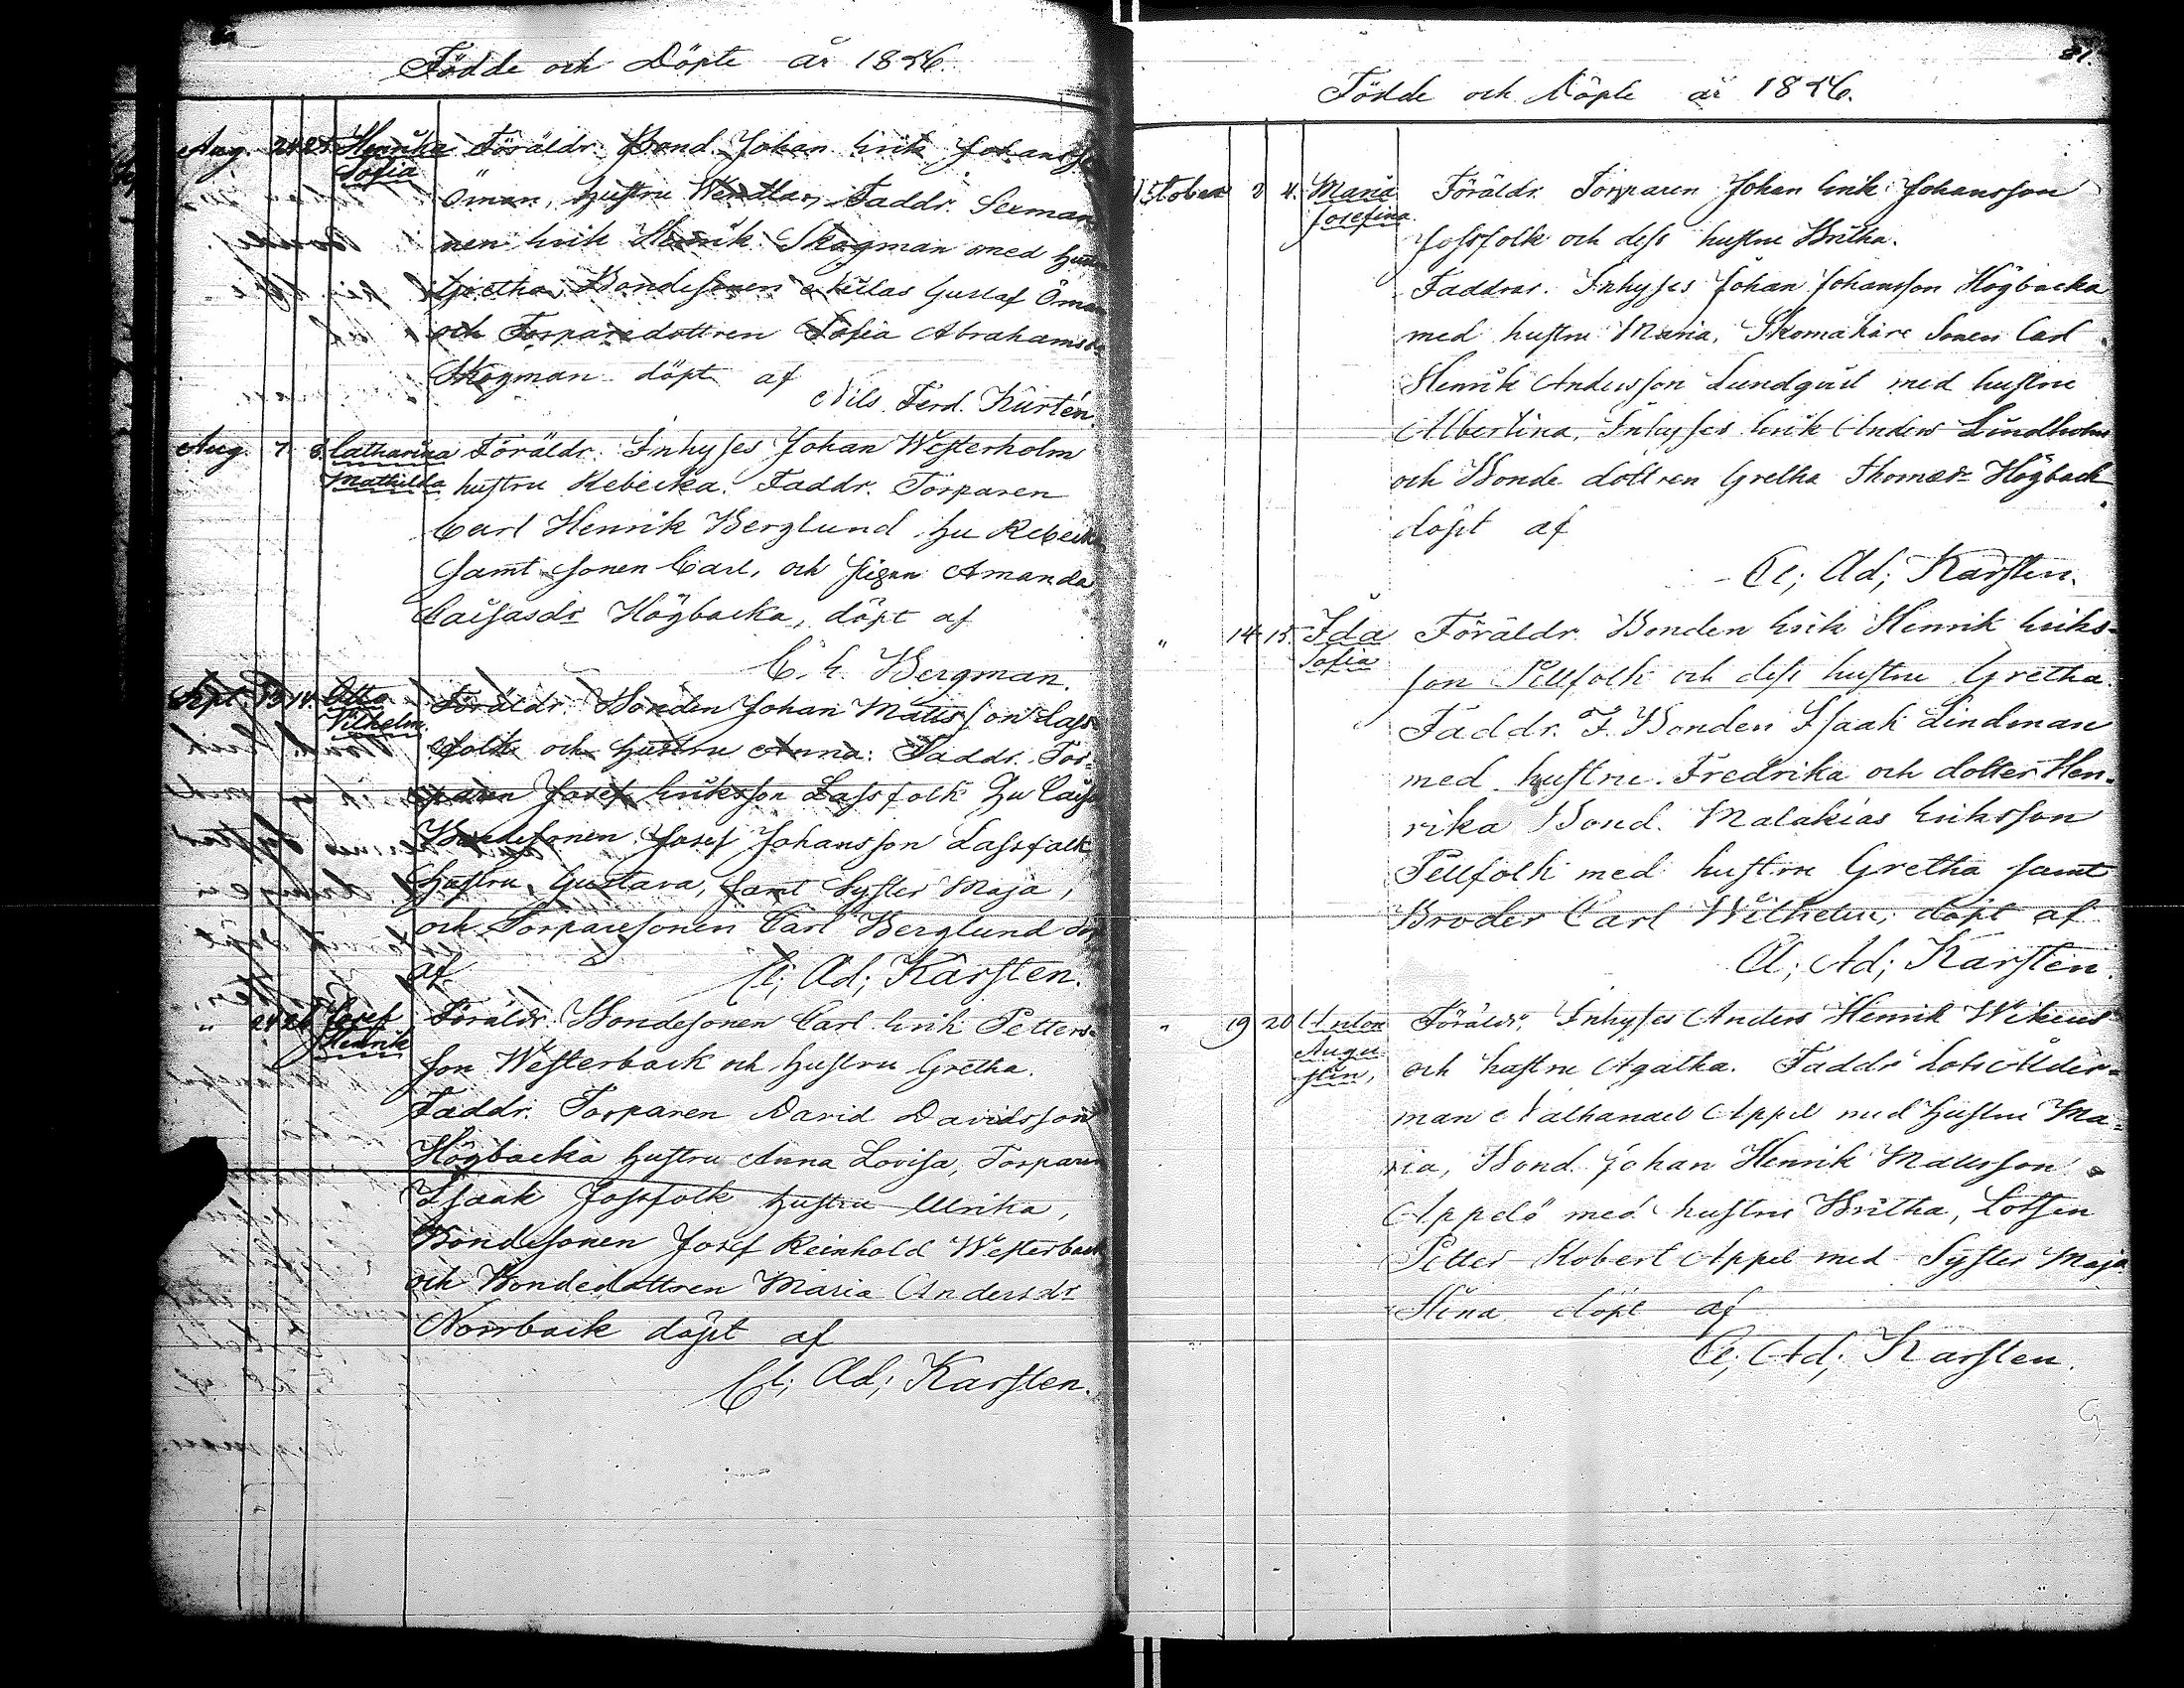 Födde och Döpte år 1856.
Aug. 24 25 Henrika Föräldr. Bond. Johan Erik Johansson
Sofia
Öman, hustru Wendla, Faddr. Sexman
nen Erik Henrik Skogman med hustru
Gretha, Bondesonen Nicklas Gustaf Öman
och Torparedottren Sofia Abrahamsdr
Skogman döpt af
Nils Ferd. Kurtén.
Aug. 7. 8. Catharina Föräldr. Inhyses Johan Westerholm
Mathilda hustru Rebecka. Faddr. Torparen
Carl Henrik Berglund hu Rebecka
samt sonen Carl, och pigan Amanda
Caisasdr Högbacka, döpt af
C. E. Bergman.
Sept. 13 14. Otto Föräldr. Bonden Johan Mattsson Lass-
Vilhelm. folk och hustru Anna. Faddr. Tor-
paren Josef Eriksson Lassfolk hu Caisa
Bondesonen Josef Johansson Lassfolk
hustru Gustava, samt Syster Maja,
och Torparesonen Carl Berglund döp
af Cl; Ad; Karsten.
" Josef Föräldr. Bondesonen Carl Erik Petters-
Henrik
son Westerback och hustru Gretha.
Faddr. Torparen David Davidsson
Högbacka hustru Anna Lovisa, Torparen
Isaak Jossfolk hustru Ulrika,
Bondesonen Josef Reinhold Westerback
och Bondedottren Maria Andersdr
Norrback döpt af
Cl; Ad; Karsten.
81.
Födde och Döpte år 1856.
October 3 4. Maria Föräldr. Torparen Johan Erik Johansson
Josefina
Jossfolk och dess hustru Britha.
Faddrar. Inhyses Johan Johansson Högbacka
med hustru Maria, Skomakare Sonen Carl
Henrik Andersson Lundqvist med hustru
Albertina, Inhyses Erik Anders Lindholm
och Bonde dottren Gretha Thomasdr Högback
döpt af
Cl; Ad; Karsten.
" 14 15. Ida Föräldr. Bonden Erik Henrik Eriks-
Sofia
son Pellfolk och dess hustru Gretha.
Faddr. F. Bonden Isaak Lindman
med hustru Fredrika och dotter Hen-
rika Bond. Malakias Eriksson
Pellfolk med hustru Gretha samt
Broder Carl Wilhelm, döpt af
Cl; Ad; Karsten.
" 19 20 Anton Föräldr. Inhyses Anders Henrik Wikus
Augu
stin, och hustru Agatha. Faddr Lots Ålder-
man Nathanael Appel med hustru Ma-
ria, Bond. Johan Henrik Mattsson
Appelö med hustru Britha, Lotsen
Petter Robert Appel med Syster Maja
Stina döpt af
Cl; Ad; Karsten.